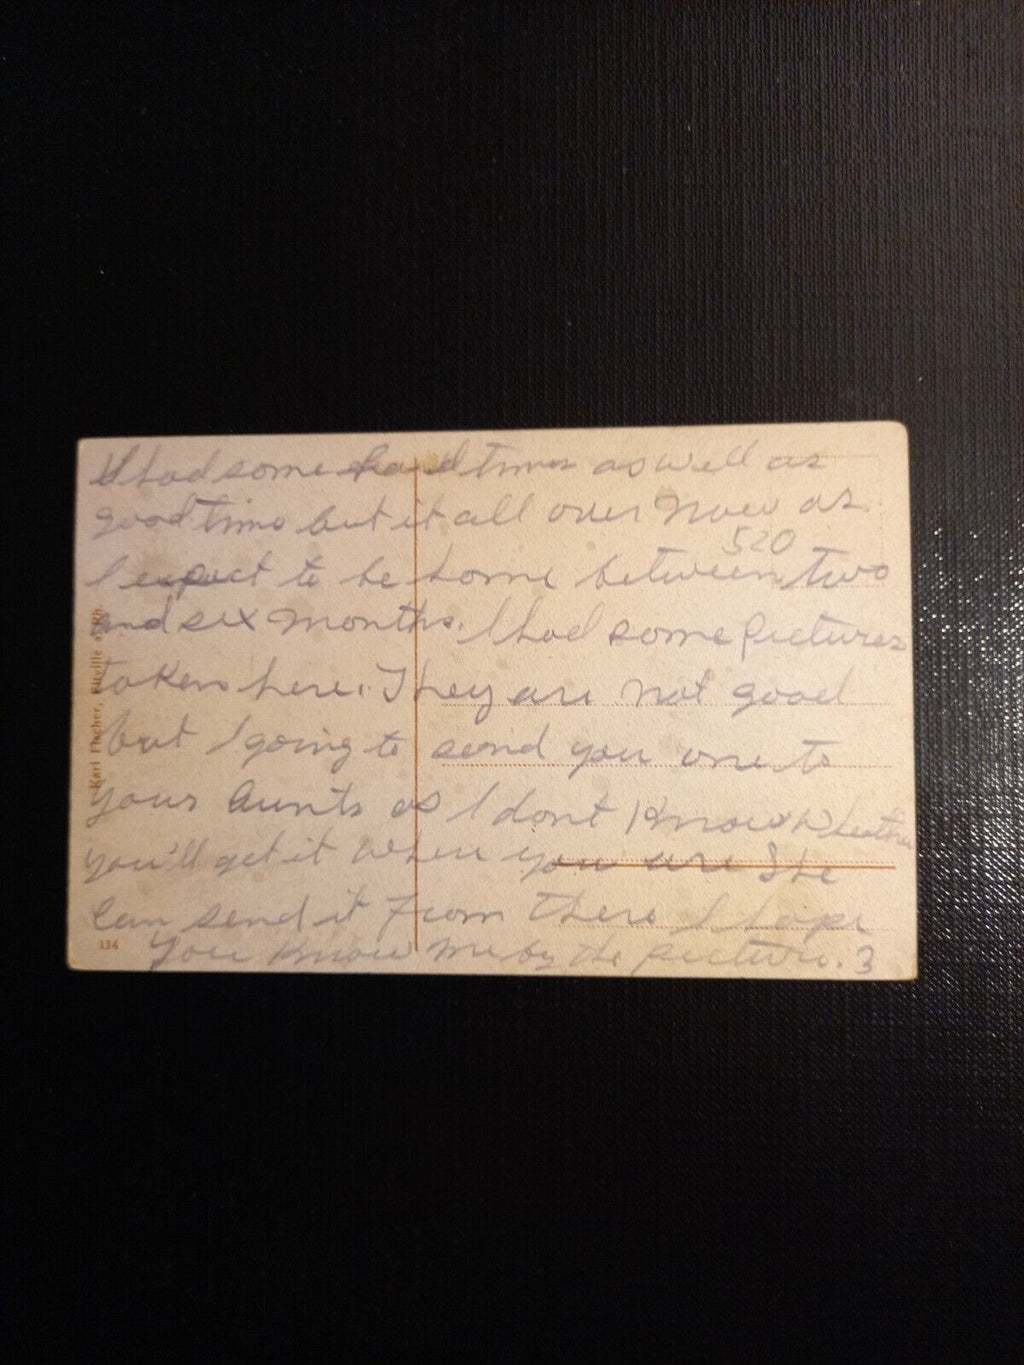 I had some hard times as well as
good time but it all over now as
520
I expect to be home between two
and six months. I had some pictures
taken here. They are not good
but I going to send you one to
your Aunts as I dont know wheather
you'll get it when you are She
can send it from there I hope
you know me by the picture. 3
Karl Fischer, Eltville a. Rh.
114